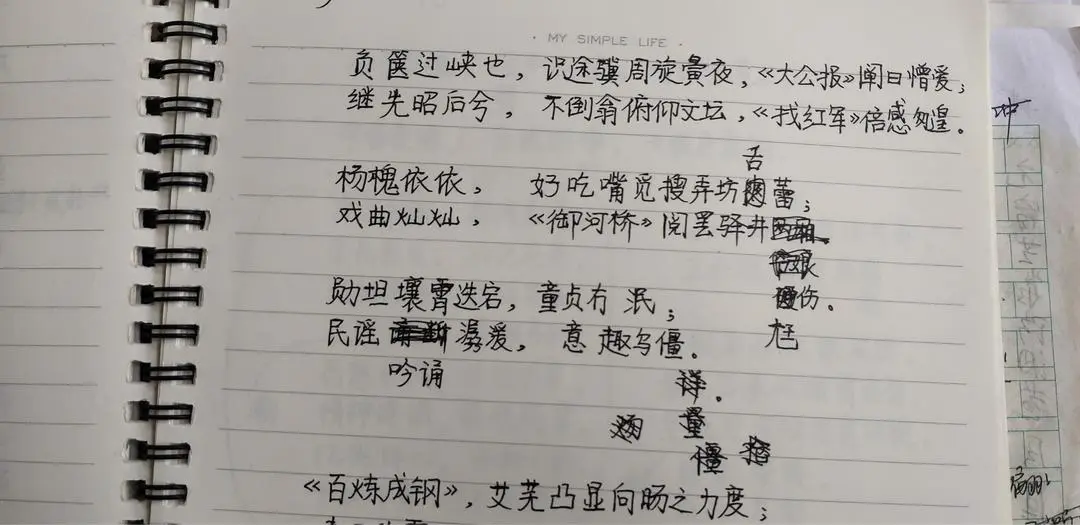 · MY SIMPLE LIFE ·
负箧过峡也，识途骥周旋夤夜，《大公报》阐曰憎爱；
继先昭后兮，不倒翁俯仰文坛，《找红军》倍感匆遑。
舌
杨槐依依，好吃嘴觅搜弄坊蕾；
戏曲灿灿，《御河桥》阅罢驿井
勋坦壤霄迭宕，童贞冇泯；
伤。
民谣潺湲，意趣乌僵。
尪
吟诵
《百炼成钢》，艾芜凸显向肠之力度；